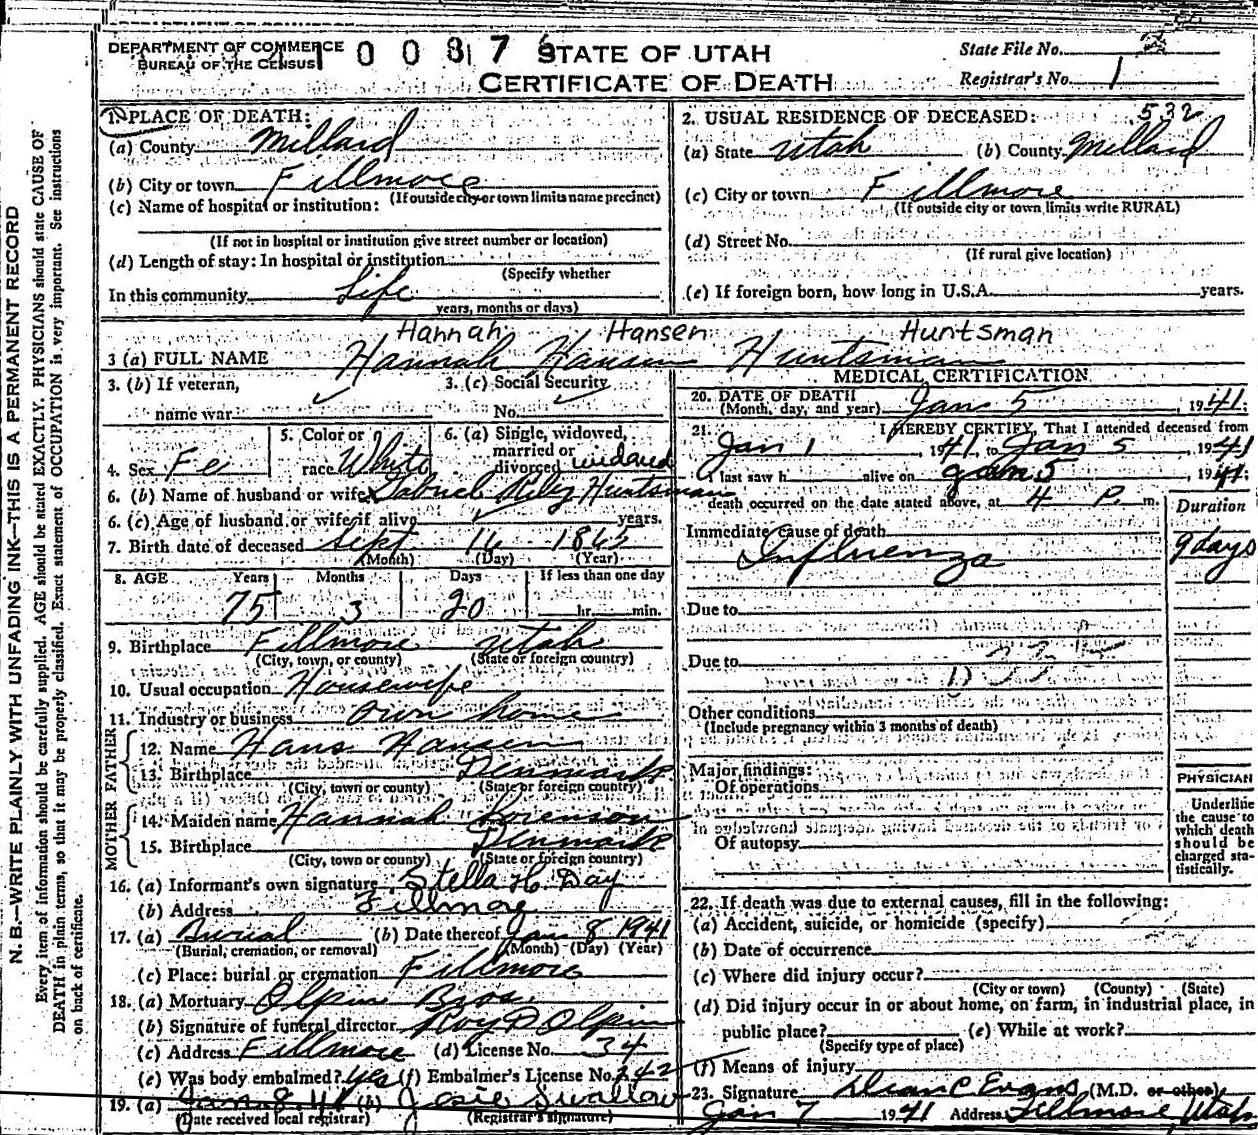 DEPARTMENT OF COMMERCE
BUREAU OF THE CENSUS
STATE OF UTAH
CERTIFICATE OF DEATH
State File No.
Registrar's No. 1
1. PLACE OF DEATH:
(a) County Millard
(b) City or town Fillmore
(If outside city or town limits name precinct)
(c) Name of hospital or institution:
(If not in hospital or institution give street number or location)
(d) Length of stay: In hospital or institution
(Specify whether
In this community Life
years, months or days)
532
2. USUAL RESIDENCE OF DECEASED:
(a) State Utah (b) County Millard
(c) City or town Fillmore
(If outside city or town limits write RURAL)
(d) Street No.
(If rural give location)
(e) If foreign born, how long in U.S.A. years.
Hannah Hansen Huntsman
3 (a) FULL NAME Hannah Hansen Huntsman
3. (b) If veteran, 3. (c) Social Security
name war No.
4. Sex Fe 5. Color or race White 6. (a) Single, widowed, married or divorced widowed
6. (b) Name of husband or wife Gabriel Riley Huntsman
6. (c) Age of husband or wife if alive years.
7. Birth date of deceased Sept 16 1865
(Month) (Day) (Year)
8. AGE Years Months Days If less than one day
75 3 20 hr. min.
9. Birthplace Fillmore Utah
(City, town, or county) (State or foreign country)
10. Usual occupation Housewife
11. Industry or business own home
FATHER
12. Name Hans Hansen
13. Birthplace Denmark
(City, town or county) (State or foreign country)
MOTHER
14. Maiden name Hannah Sorenson
15. Birthplace Denmark
(City, town or county) (State or foreign country)
16. (a) Informant's own signature Stella H. Day
(b) Address Fillmore
17. (a) Burial (b) Date thereof Jan 8 1941
(Burial, cremation, or removal) (Month) (Day) (Year)
(c) Place: burial or cremation Fillmore
18. (a) Mortuary Olpin Bros.
(b) Signature of funeral director Roy D Olpin
(c) Address Fillmore (d) License No. 34
(e) Was body embalmed? Yes (f) Embalmer's License No. 242
19. (a) Jan 8 41 (b) Josie Swallow
(Date received local registrar) (Registrar's signature)
MEDICAL CERTIFICATION
20. DATE OF DEATH
(Month, day, and year) Jan 5, 1941.
21. I HEREBY CERTIFY, That I attended deceased from
Jan 1, 1941, to Jan 5, 1941
I last saw h alive on Jan 5, 1941.
death occurred on the date stated above, at 4 P. m.
Duration
Immediate cause of death
Influenza 9 days
Due to
Due to
Other conditions
(Include pregnancy within 3 months of death)
Major findings:
Of operations
Of autopsy
PHYSICIAN
Underline
the cause to
which death
should be
charged sta-
tistically.
22. If death was due to external causes, fill in the following:
(a) Accident, suicide, or homicide (specify)
(b) Date of occurrence
(c) Where did injury occur?
(City or town) (County) (State)
(d) Did injury occur in or about home, on farm, in industrial place, in
public place? (e) While at work?
(Specify type of place)
(f) Means of injury
23. Signature Dean C Evans (M.D. or other)
Jan 7 1941 Address Fillmore, Utah
N. B.—WRITE PLAINLY WITH UNFADING INK—THIS IS A PERMANENT RECORD
Every item of information should be carefully supplied. AGE should be stated EXACTLY. PHYSICIANS should state CAUSE OF
DEATH in plain terms, so that it may be properly classified. Exact statement of OCCUPATION is very important. See instructions
on back of certificate.